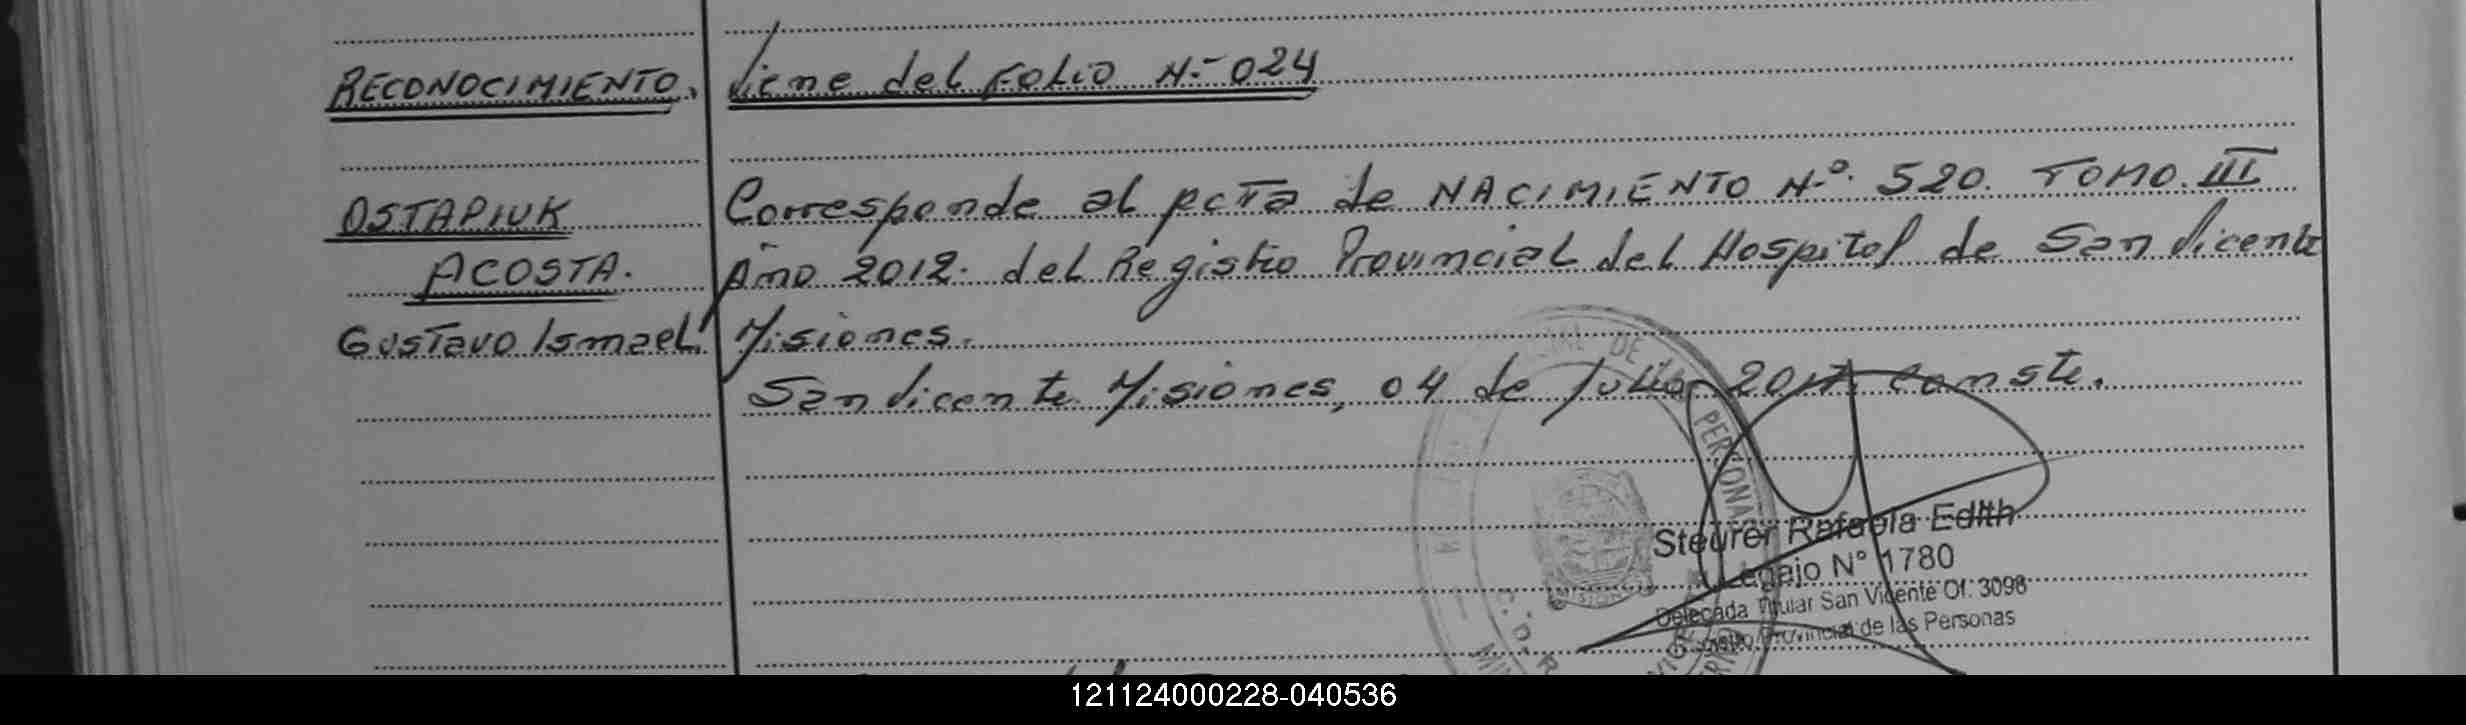 RECONOCIMIENTO. Viene del FOLIO N.- 024
OSTAPIUK Corresponde al acta de NACIMIENTO N.º 520. TOMO. III
ACOSTA. Año 2012. del Registro Provincial del Hospital de San Vicente
Gustavo Ismael Misiones.
San Vicente Misiones, 04 de Julio 2017. Conste.
DE LAS PERSONAS
Steurer Rafaela Edith
Legajo N° 1780
Delegada Titular San Vicente Of. 3098
Registro Provincial de las Personas
MISIONES
121124000228-040536